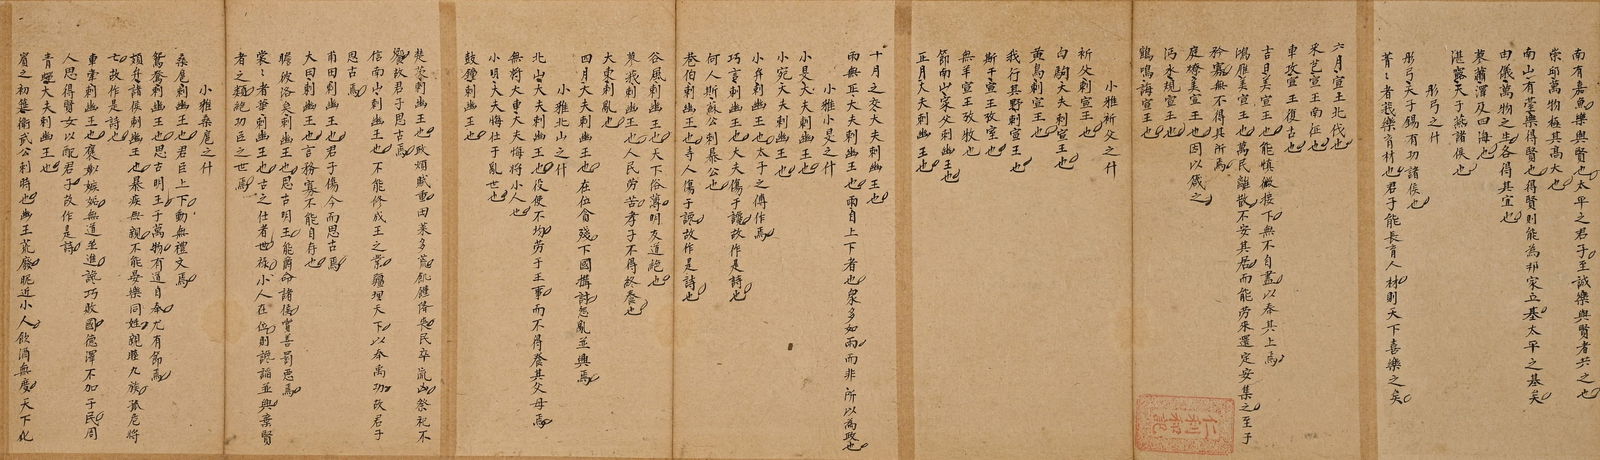 南有嘉魚樂與賢也太平之君子至誠樂與賢者共之也
崇邱萬物極其高大也
南山有臺樂得賢也得賢則能為邦家立基太平之基矣
由儀萬物之生各得其宜也
蓼蕭澤及四海也
湛露天子燕諸侯也
彤弓之什
彤弓天子錫有功諸侯也
菁〻者莪樂育材也君子能長育人材則天下喜樂之矣
六月宣王北伐也
采芑宣王南征也
車攻宣王復古也
吉日美宣王也能慎微接下無不自盡以奉其上焉
鴻雁美宣王也萬民離散不安其居而能勞來還定安集之至于
矜寡無不得其所焉
庭燎美宣王也因以箴之
沔水規宣王也
鶴鳴誨宣王也
小雅祈父之什
祈父刺宣王也
白駒大夫刺宣王也
黃鳥刺宣王也
我行其野刺宣王也
斯干宣王攷室也
無羊宣王攷牧也
節南山家父刺幽王也
正月大夫刺幽王也
十月之交大夫刺幽王也
雨無正大夫刺幽王也雨自上下者也衆多如雨而非所以為政也
小雅小旻之什
小旻大夫刺幽王也
小宛大夫刺幽王也
小弁刺幽王也太子之傅作焉
巧言刺幽王也大夫傷于讒故作是詩也
何人斯蘇公刺暴公也
巷伯刺幽王也寺人傷于讒故作是詩也
谷風刺幽王也天下俗薄朋友道絶也
蓼莪刺幽王也人民勞苦孝子不得終養也
大東刺亂也
四月大夫刺幽王也在位貪殘下國構禍怨亂並興焉
小雅北山之什
北山大夫刺幽王也役使不均勞于王事而不得養其父母焉
無將大車大夫悔將小人也
小明大夫悔仕于亂世也
鼓鍾刺幽王也
楚茨刺幽王也政煩賦重田萊多荒飢饉降喪民卒流亡祭祀不
饗故君子思古焉
信南山刺幽王也不能修成王之業疆理天下以奉禹功故君子
思古焉
甫田刺幽王也君子傷今而思古焉
大田刺幽王也言矜寡不能自存也
瞻彼洛矣刺幽王也思古明王能爵命諸侯賞善罰惡焉
裳〻者華刺幽王也古之仕者世祿小人在位則讒諂並興棄賢
者之類絶功臣之世焉
小雅桑扈之什
桑扈刺幽王也君臣上下動無禮文焉
鴛鴦刺幽王也思古明王于萬物有道自奉尤有節焉
頍弁諸侯刺幽王也暴戾無親不能宴樂同姓親睦九族孤危將
亡故作是詩也
車舝刺幽王也褒姒嫉妬無道並進讒巧敗國德澤不加于民周
人思得賢女以配君子故作是詩
青蠅大夫刺幽王也
賓之初筵衛武公刺時也幽王荒廢昵近小人飲酒無度天下化